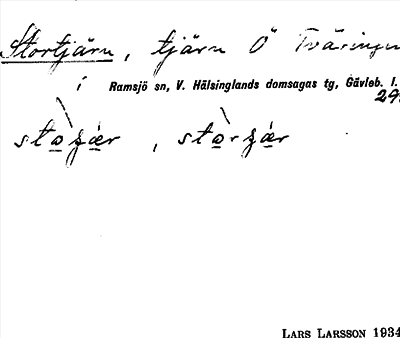 Stortjärn, tjärn Ö Tväringen
i Ramsjö sn, V. Hälsinglands domsagas tg, Gävleb. l.
29.
LARS LARSSON 1934